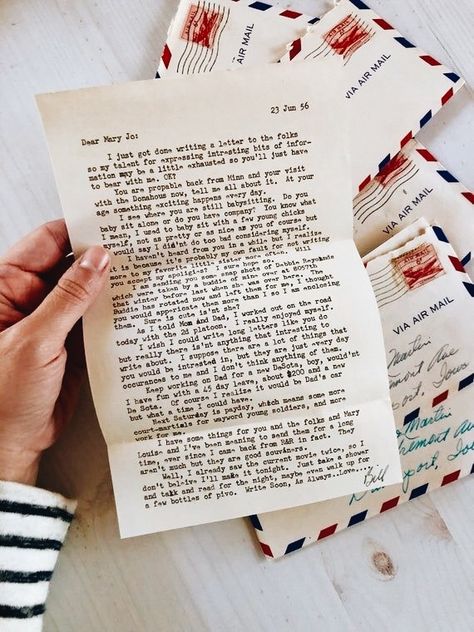 23 Jun 56
Dear Mary Jo:
I just got done writing a letter to the folks
so my talent for expressing intresting bits of infor-
mation may be a little exhausted so you'll just have
to bear with me. OK?
You are propable back from Minn and your visit
with the Domahous now, tell me all about it. At your
age something exciting happens every day.
I see where you are still babysitting. Do you
baby sit alone or do you have company? You know what
I mean, I used to baby sit with a few young chicks
myself, not as pretty or as nice as you of course but
I would say I did'nt do too bad considering myself.
I haven't heard from you in a while but I realize
it is because it's probably my own fault for not writing
more to my favorite little sister more often. Will
you accept my apoligies? I sure hope so.
I am sending you some snap shots of Debbie
which were taken by a buddie of mine over at 8057th
that winter before last when she was over here. The
Buddie has rotated now and left them for me, I thought
you would appricate them more than I so I am enclosing
them. Sure is cute is'nt she?
As I told Mom and Dad, I worked out on the road
today with the 2d platoon. I really enjoyed myself.
I wish I could write long letters like you do
but really there is'nt anything that intresting to
write about. I suppose there are a lot of things that
you would be intrested in, but they are just every day
occurances to me and I don't think anything of them.
Keep working on Dad for a new DeSota, boy, would'nt
I have fun with a 45 day leave, about $200 and a new
De Sota. Of course I realise it would be Dad's car
but what a time I could have.
Next Saturday is payday, which means some more
court-martials for wayword young soldiers, and more
work for me.
I have some things for you and the folks and Mary
Louise and I've been meaning to send them for a long
time, ever since I came back from R&R in fact. They
aren't much but they are good souvaners.
Well, I already saw the current movie twice, so I
don't beleive I'll make it tonight. Just take a shower
and talk and read for the night, maybe even walk up for
a few bottles of pivo. Write Soon, As Always..Love..
Bill
VIA AIR MAIL
VIA AIR MAIL
VIA AIR MAIL
VIA AIR MAIL
Martin
Ave
Iowa
Martin
Ave
Davenport, Iowa